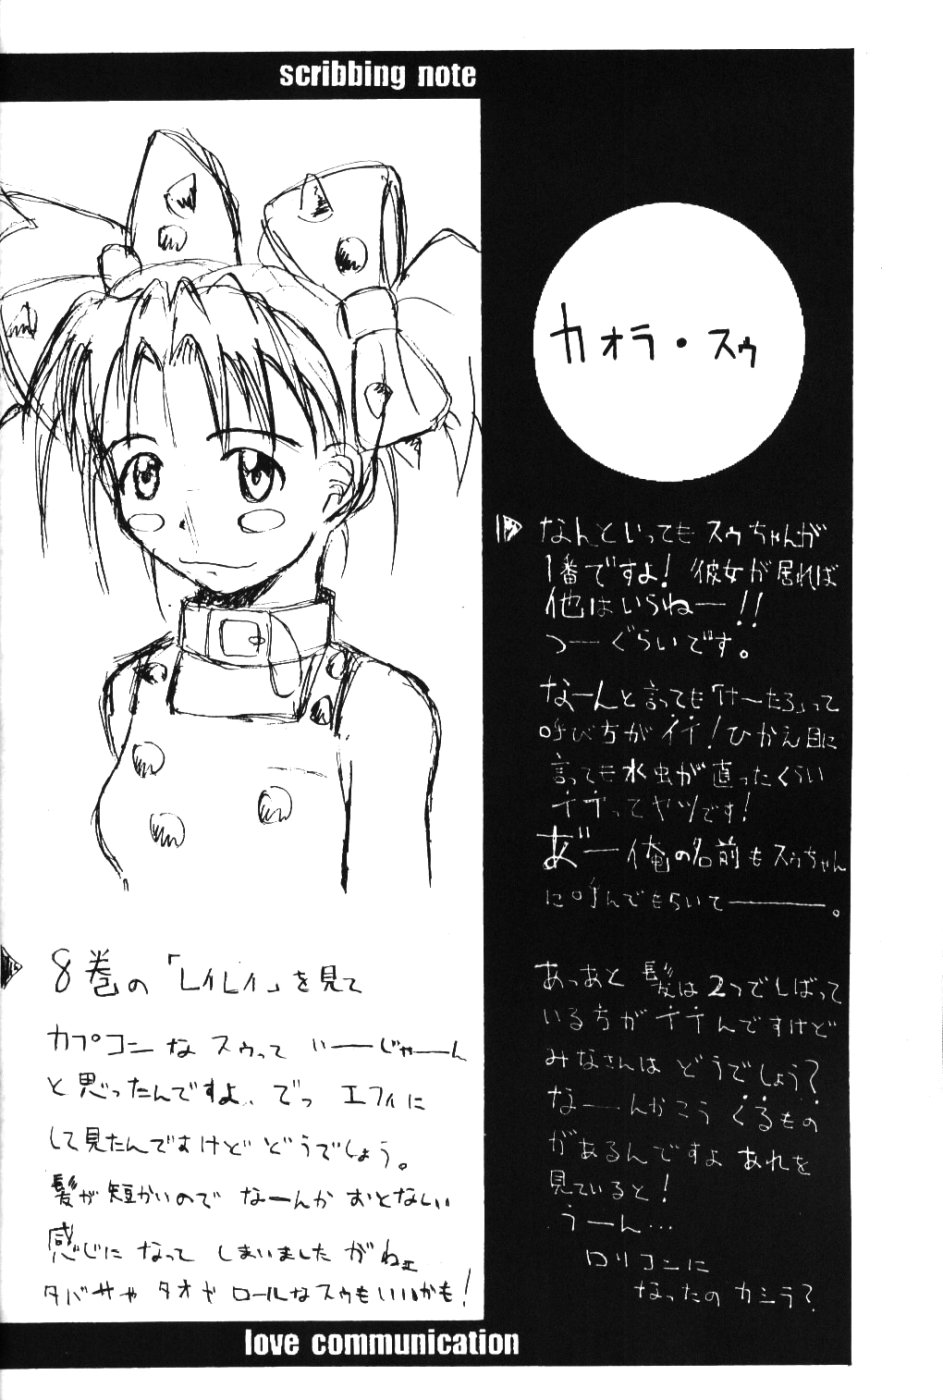 scribbing note
カオラ・スゥ
なんといってもスゥちゃんが
1番ですよ！彼女が居れば
他はいらねー！！
つーぐらいです。
なーんと言っても「けーたろ」って
呼び方がイイ！ひかえ目に
言っても水虫が直ったくらい
イイってヤツです！
あ゛ー俺の名前もスゥちゃん
に呼んでもらいてー――。
あっあと髪は2つでしばって
いる方がイイんですけど
みなさんはどうでしょう？
なーんかこうくるもの
があるんですよあれを
見ていると！
うーん…
ロリコンに
なったのカシラ？
8巻の「レイレイ」を見て
カプコンなスゥって いーじゃーん
と思ったんですよ、でっ エフィに
して見たんですけど どうでしょう。
髪が短かいので なーんか おとなしい
感じに なって しまいました がねェ
タバサや タオや ロールなスゥもいいかも！
love communication